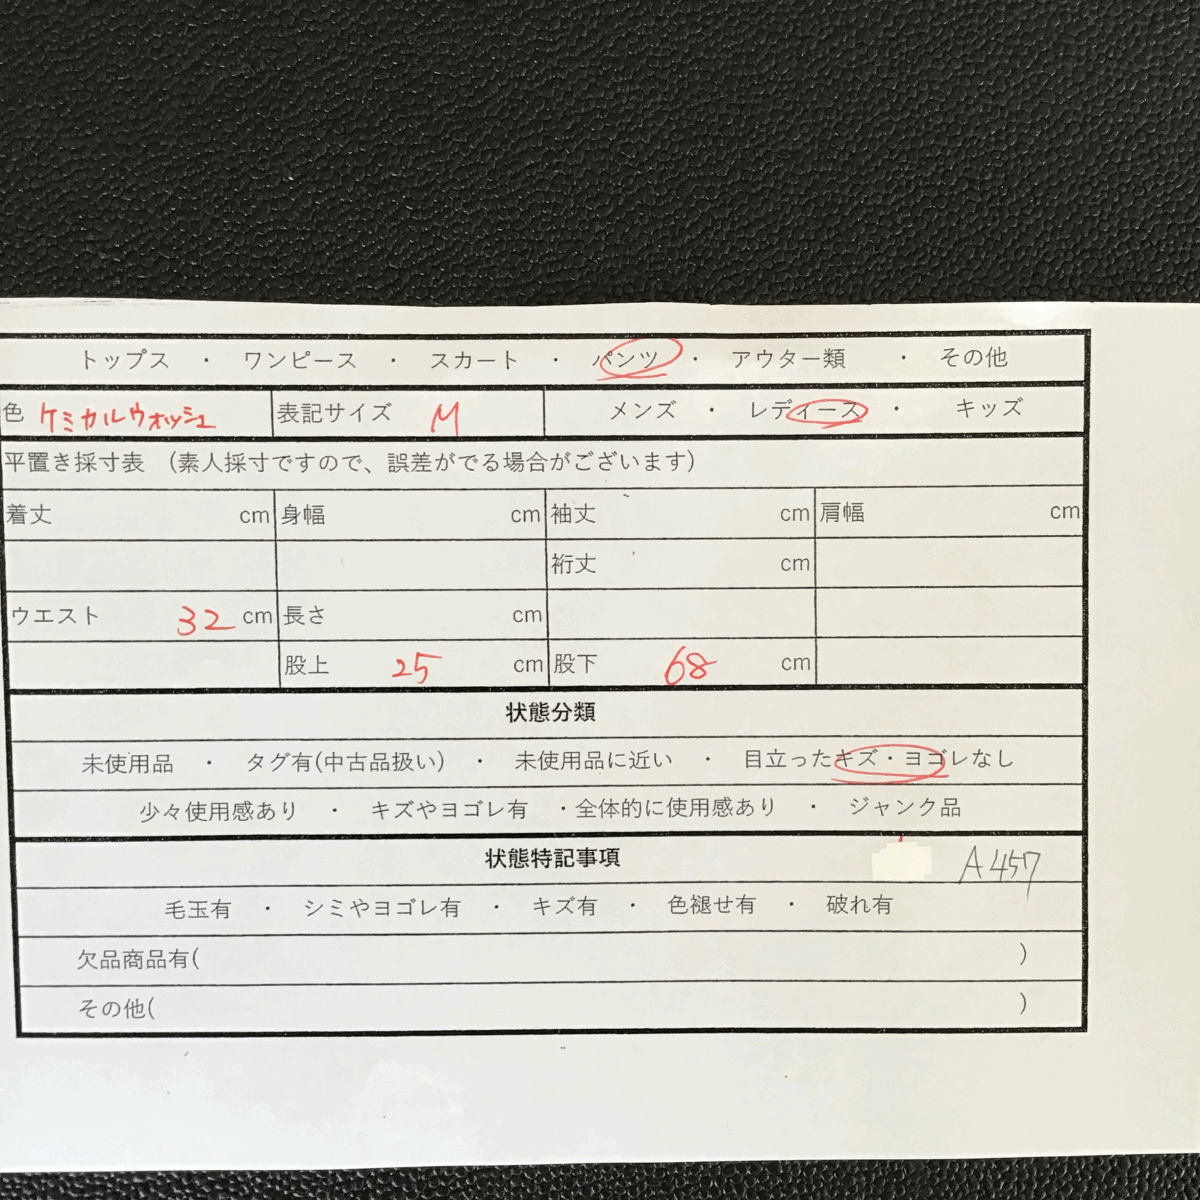 トップス ・ ワンピース ・ スカート ・ パンツ ・ アウター類 ・ その他
色 ケミカルウォッシュ 表記サイズ M メンズ ・ レディース ・ キッズ
平置き採寸表 (素人採寸ですので、誤差がでる場合がございます)
着丈 cm 身幅 cm 袖丈 cm 肩幅 cm
裄丈 cm
ウエスト 32 cm 長さ cm
股上 25 cm 股下 68 cm
状態分類
未使用品 ・ タグ有(中古品扱い) ・ 未使用品に近い ・ 目立ったキズ・ヨゴレなし
少々使用感あり ・ キズやヨゴレ有 ・全体的に使用感あり ・ ジャンク品
状態特記事項 A457
毛玉有 ・ シミやヨゴレ有 ・ キズ有 ・ 色褪せ有 ・ 破れ有
欠品商品有( )
その他( )